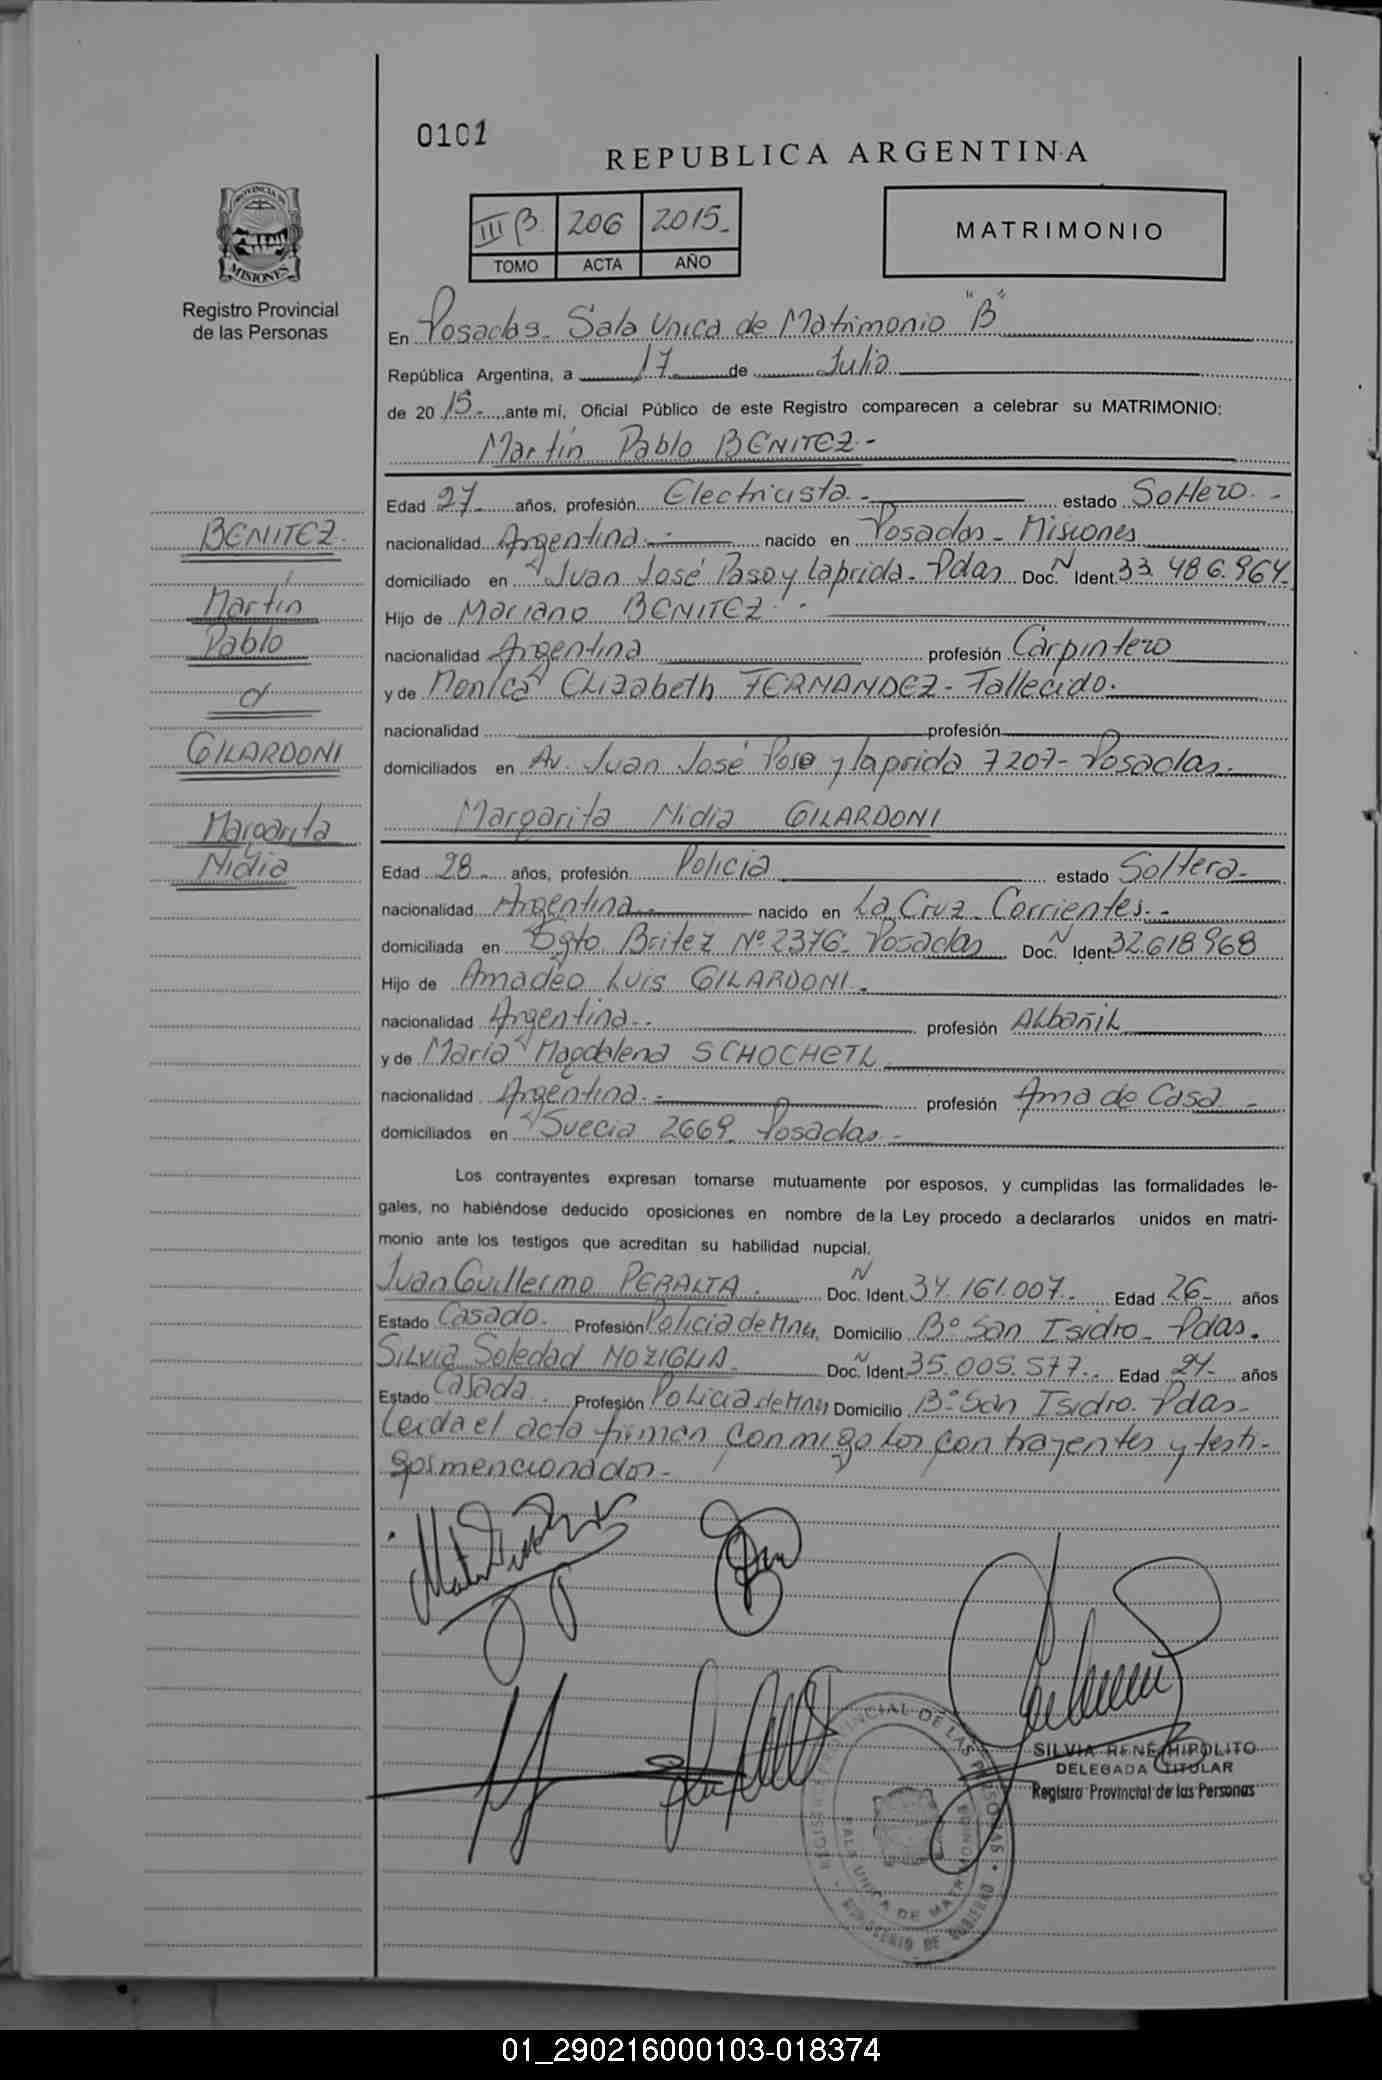 0101
REPUBLICA ARGENTINA
PROVINCIA DE
MISIONES
Registro Provincial
de las Personas
III B. 206 2015.-
TOMO ACTA AÑO
MATRIMONIO
En Posadas. Sala Unica de Matrimonio "B"
República Argentina, a 17 de Julio
de 2015.- ante mi, Oficial Público de este Registro comparecen a celebrar su MATRIMONIO:
Martín Pablo BENITEZ.-
Edad 27.- años, profesión Electricista.- estado Soltero.-
nacionalidad Argentina.- nacido en Posadas - Misiones
domiciliado en Juan José Paso y Laprida. Pdas Doc. N Ident. 33.486.964.
Hijo de Mariano BENITEZ.-
nacionalidad Argentina profesión Carpintero
y de Monica Elizabeth FERNANDEZ - Fallecido.
nacionalidad profesión
domiciliados en Av. Juan José Paso y laprida 7207- Posadas.
Margarita Nidia GILARDONI
Edad 28.- años, profesión Policia estado Soltera.-
nacionalidad Argentina.- nacido en La Cruz. Corrientes.-
domiciliada en Sgto. Britez Nº 2376. Posadas Doc. N Ident. 32.618.968
Hijo de Amadeo Luis GILARDONI.-
nacionalidad Argentina.. profesión Albañil
y de María Magdalena SCHOCHETL
nacionalidad Argentina.- profesión Ama de Casa.-
domiciliados en Suecia 2669. Posadas.-
Los contrayentes expresan tomarse mutuamente por esposos, y cumplidas las formalidades le-
gales, no habiéndose deducido oposiciones en nombre de la Ley procedo a declararlos unidos en matri-
monio ante los testigos que acreditan su habilidad nupcial.
Juan Guillermo PERALTA. Doc. N Ident. 34.161.007. Edad 26.- años
Estado Casado. Profesión Policia de Mnes. Domicilio Bº San Isidro. Pdas.
Silvia Soledad NOZIGLIA Doc. N Ident. 35.005.577.. Edad 24.- años
Estado Casada. Profesión Policia de Mnes Domicilio Bº San Isidro. Pdas.
Leida el acta firman conmigo los contrayentes y testi-
gos mencionados.-
BENITEZ.
Martín
Pablo
c/
GILARDONI
Margarita
Nidia
SILVIA RENÉ HIPOLITO
DELEGADA TITULAR
Registro Provincial de las Personas
REGISTRO PROVINCIAL DE LAS PERSONAS
SALA UNICA DE MATRIMONIO
MINISTERIO DE GOBIERNO
01_290216000103-018374